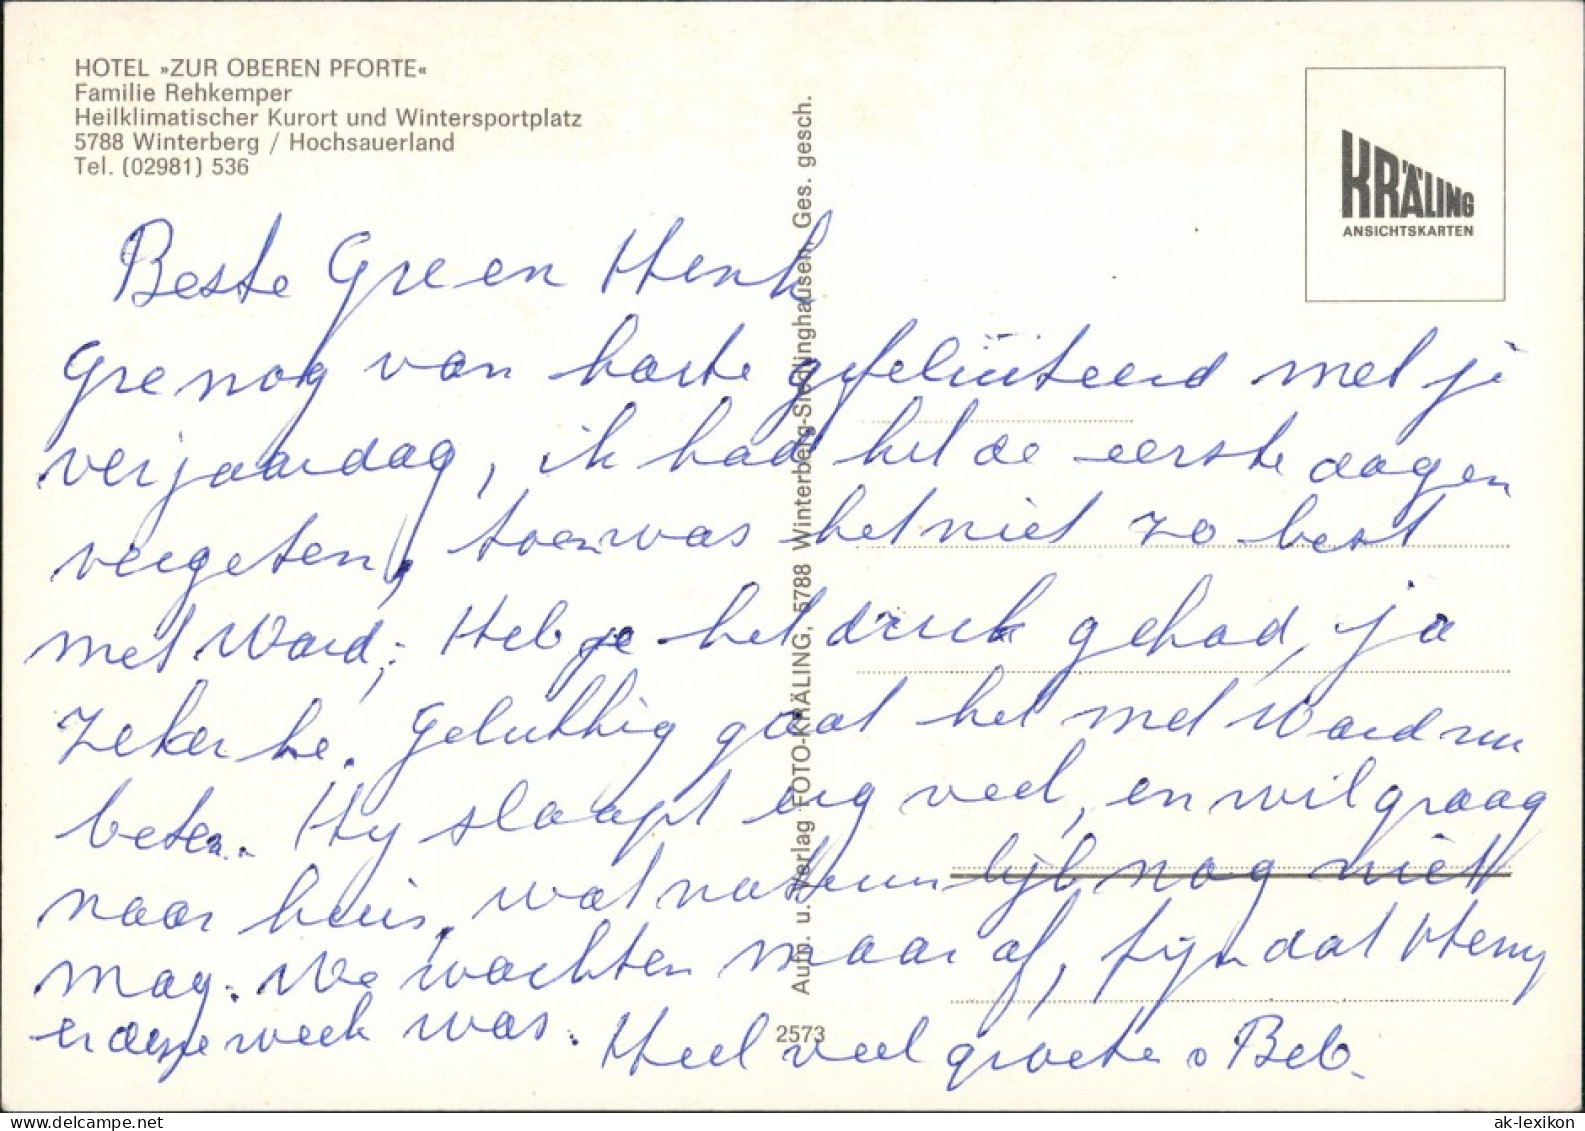 HOTEL »ZUR OBEREN PFORTE«
Familie Rehkemper
Heilklimatischer Kurort und Wintersportplatz
5788 Winterberg / Hochsauerland
Tel. (02981) 536
KRÄLING
ANSICHTSKARTEN
Aufn. u. Verlag FOTO-KRÄLING, 5788 Winterberg-Siedlinghausen, Ges. gesch.
2573
Beste Gre en Henk
Gre nog van harte gefeliciteerd met je
verjaardag, ik had het de eerste dagen
vergeten, toen was het niet zo best
met Ward; Heb je het druk gehad, ja
zeker he. Gelukkig gaat het met Ward nu
beter. Hy slaapt erg veel, en wil graag
naar huis, wat natuurlijk nog niet
mag. We wachten maar af, fijn dat Henny
er deze week was. Heel veel groeten Beb.
ak-ansichtskarten.de
ak-lexikon